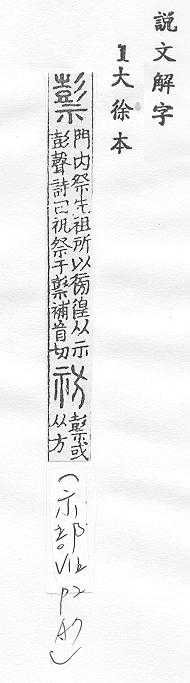 説文解字
1大徐本
𥛱
門内祭先祖所以徬徨从示
彭聲詩曰祝祭于𥛱補盲切
祊
𥛱或
从方
(示部 P2 A7)